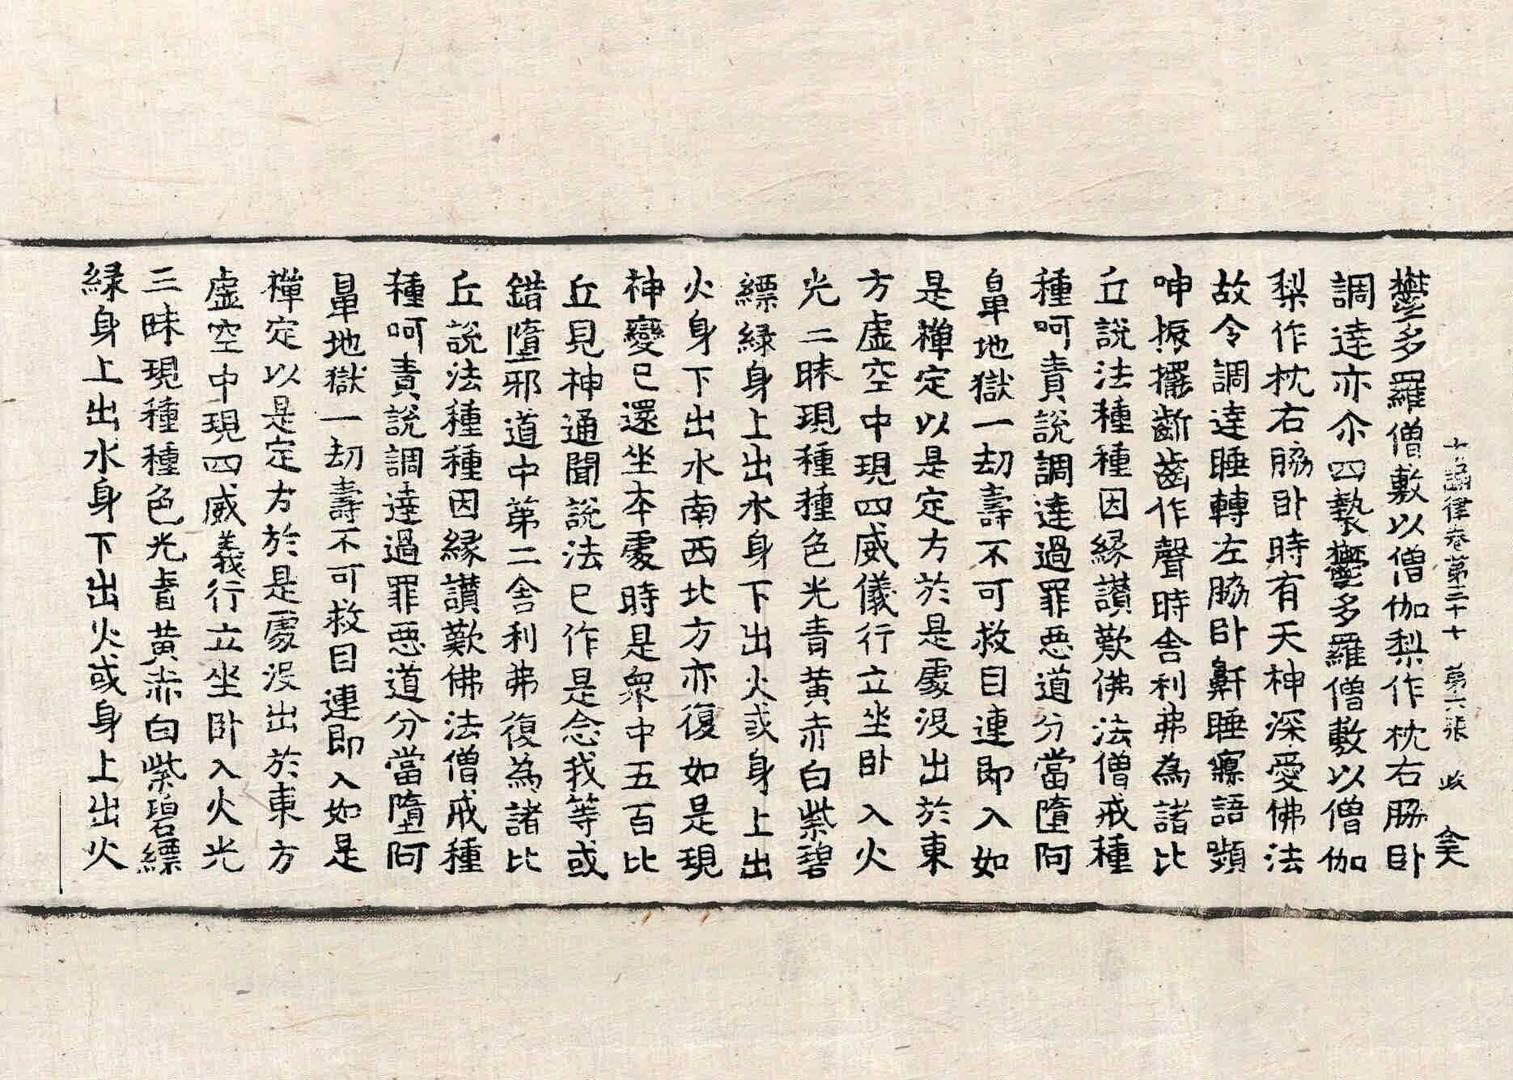 十誦律卷第三十七 第六張 政 㑒
欝多羅僧敷以僧伽梨作枕右脇卧
調達亦尒四褺欝多羅僧敷以僧伽
梨作枕右脇卧時有天神深愛佛法
故令調達睡轉左脇卧鼾睡寱語嚬
呻振擺齘齒作聲時舎利弗為諸比
丘說法種種因緣讃歎佛法僧戒種
種呵責說調達過罪惡道分當墮阿
鼻地獄一劫壽不可救目連即入如
是禪定以是定力於是處沒出於東
方虛空中現四威儀行立坐卧入火
光三昧現種種色光青黄赤白紫碧
縹緑身上出水身下出火或身上出
火身下出水南西北方亦復如是現
神變已還坐本處時是衆中五百比
丘見神通聞說法已作是念我等或
錯墮邪道中第二舎利弗復為諸比
丘說法種種因緣讃歎佛法僧戒種
種呵責說調達過罪惡道分當墮阿
鼻地獄一劫壽不可救目連即入如是
禪定以是定力於是處沒出於東方
虛空中現四威義行立坐卧入火光
三昧現種種色光青黄赤白紫碧縹
緑身上出水身下出火或身上出火